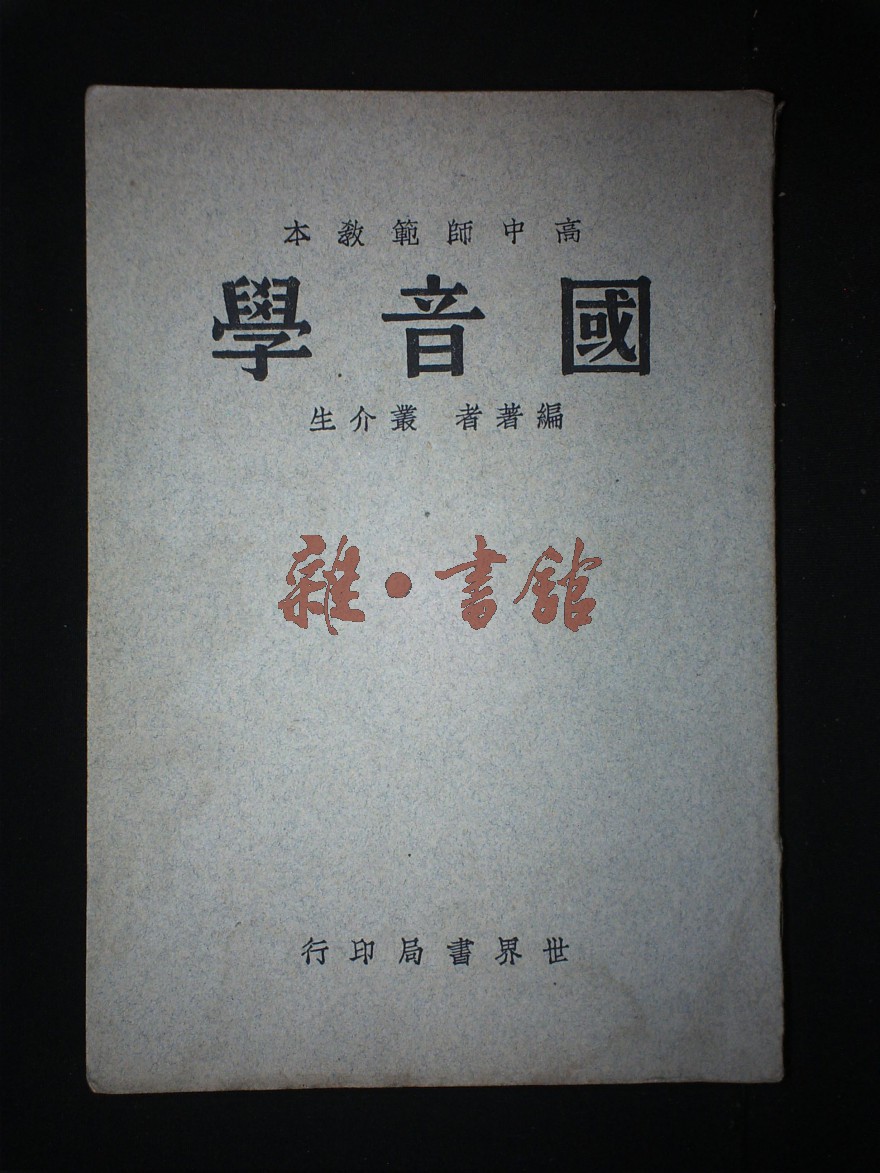 高中師範教本
國音學
編著者 叢介生
雜·書館
世界書局印行